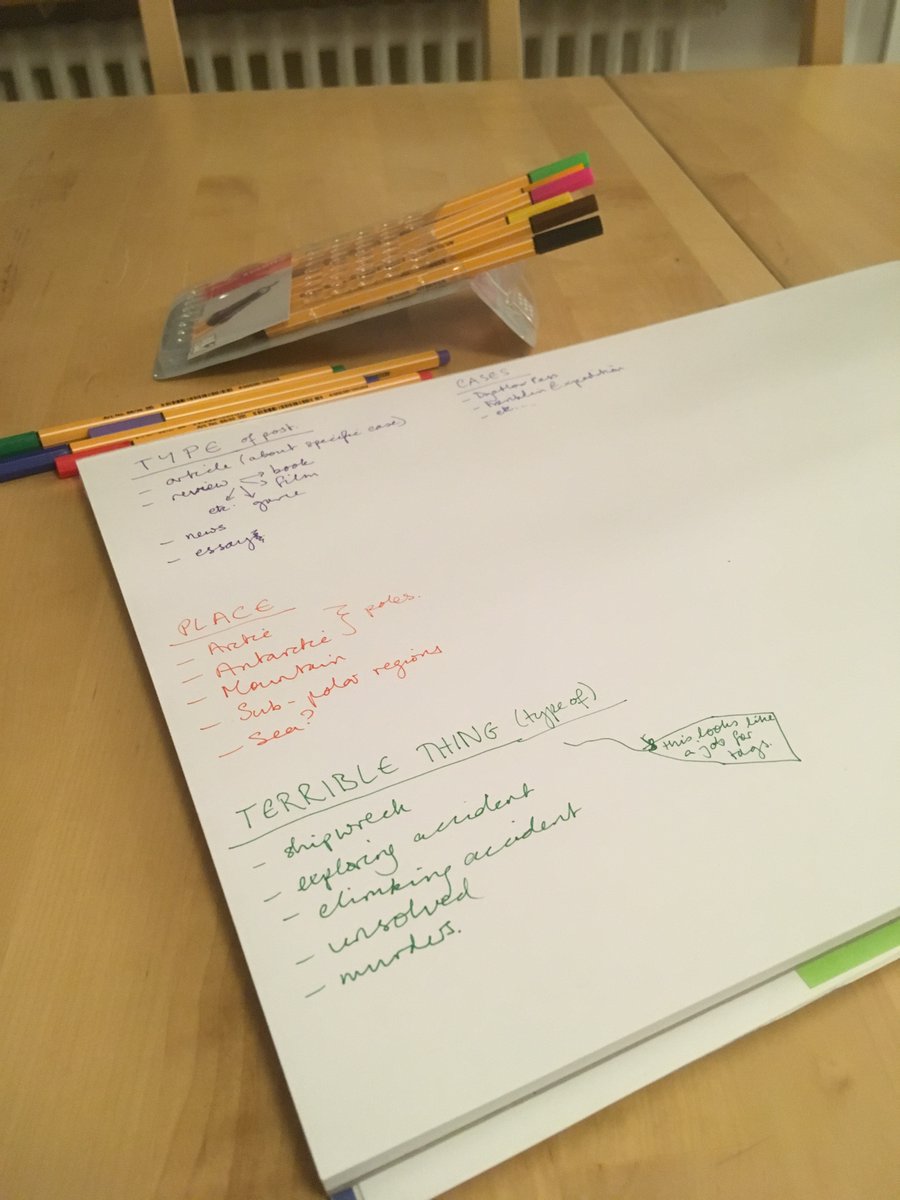 TYPE of post.
- article (about specific case)
- review → book
→ film
etc. game
- news
- essays
CASES
- Dyatlov Pass
- Franklin Expedition
- etc....
PLACE
- Arctic
- Antarctic } poles.
- Mountain
- Sub-polar regions
- Sea?
TERRIBLE THING (type of)
- shipwreck
- exploring accident
- climbing accident
- unsolved
- murders.
this looks like
a job for
tags.